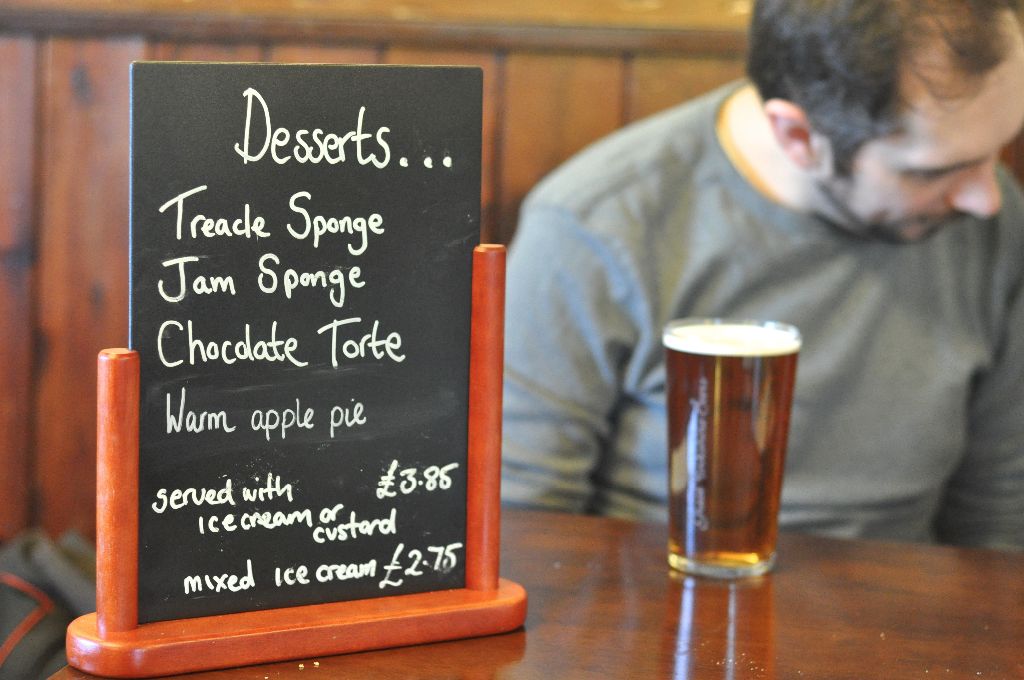 Desserts...
Treacle Sponge
Jam Sponge
Chocolate Torte
Warm apple pie
served with £3.85
ice cream or
custard
mixed ice cream £2.75